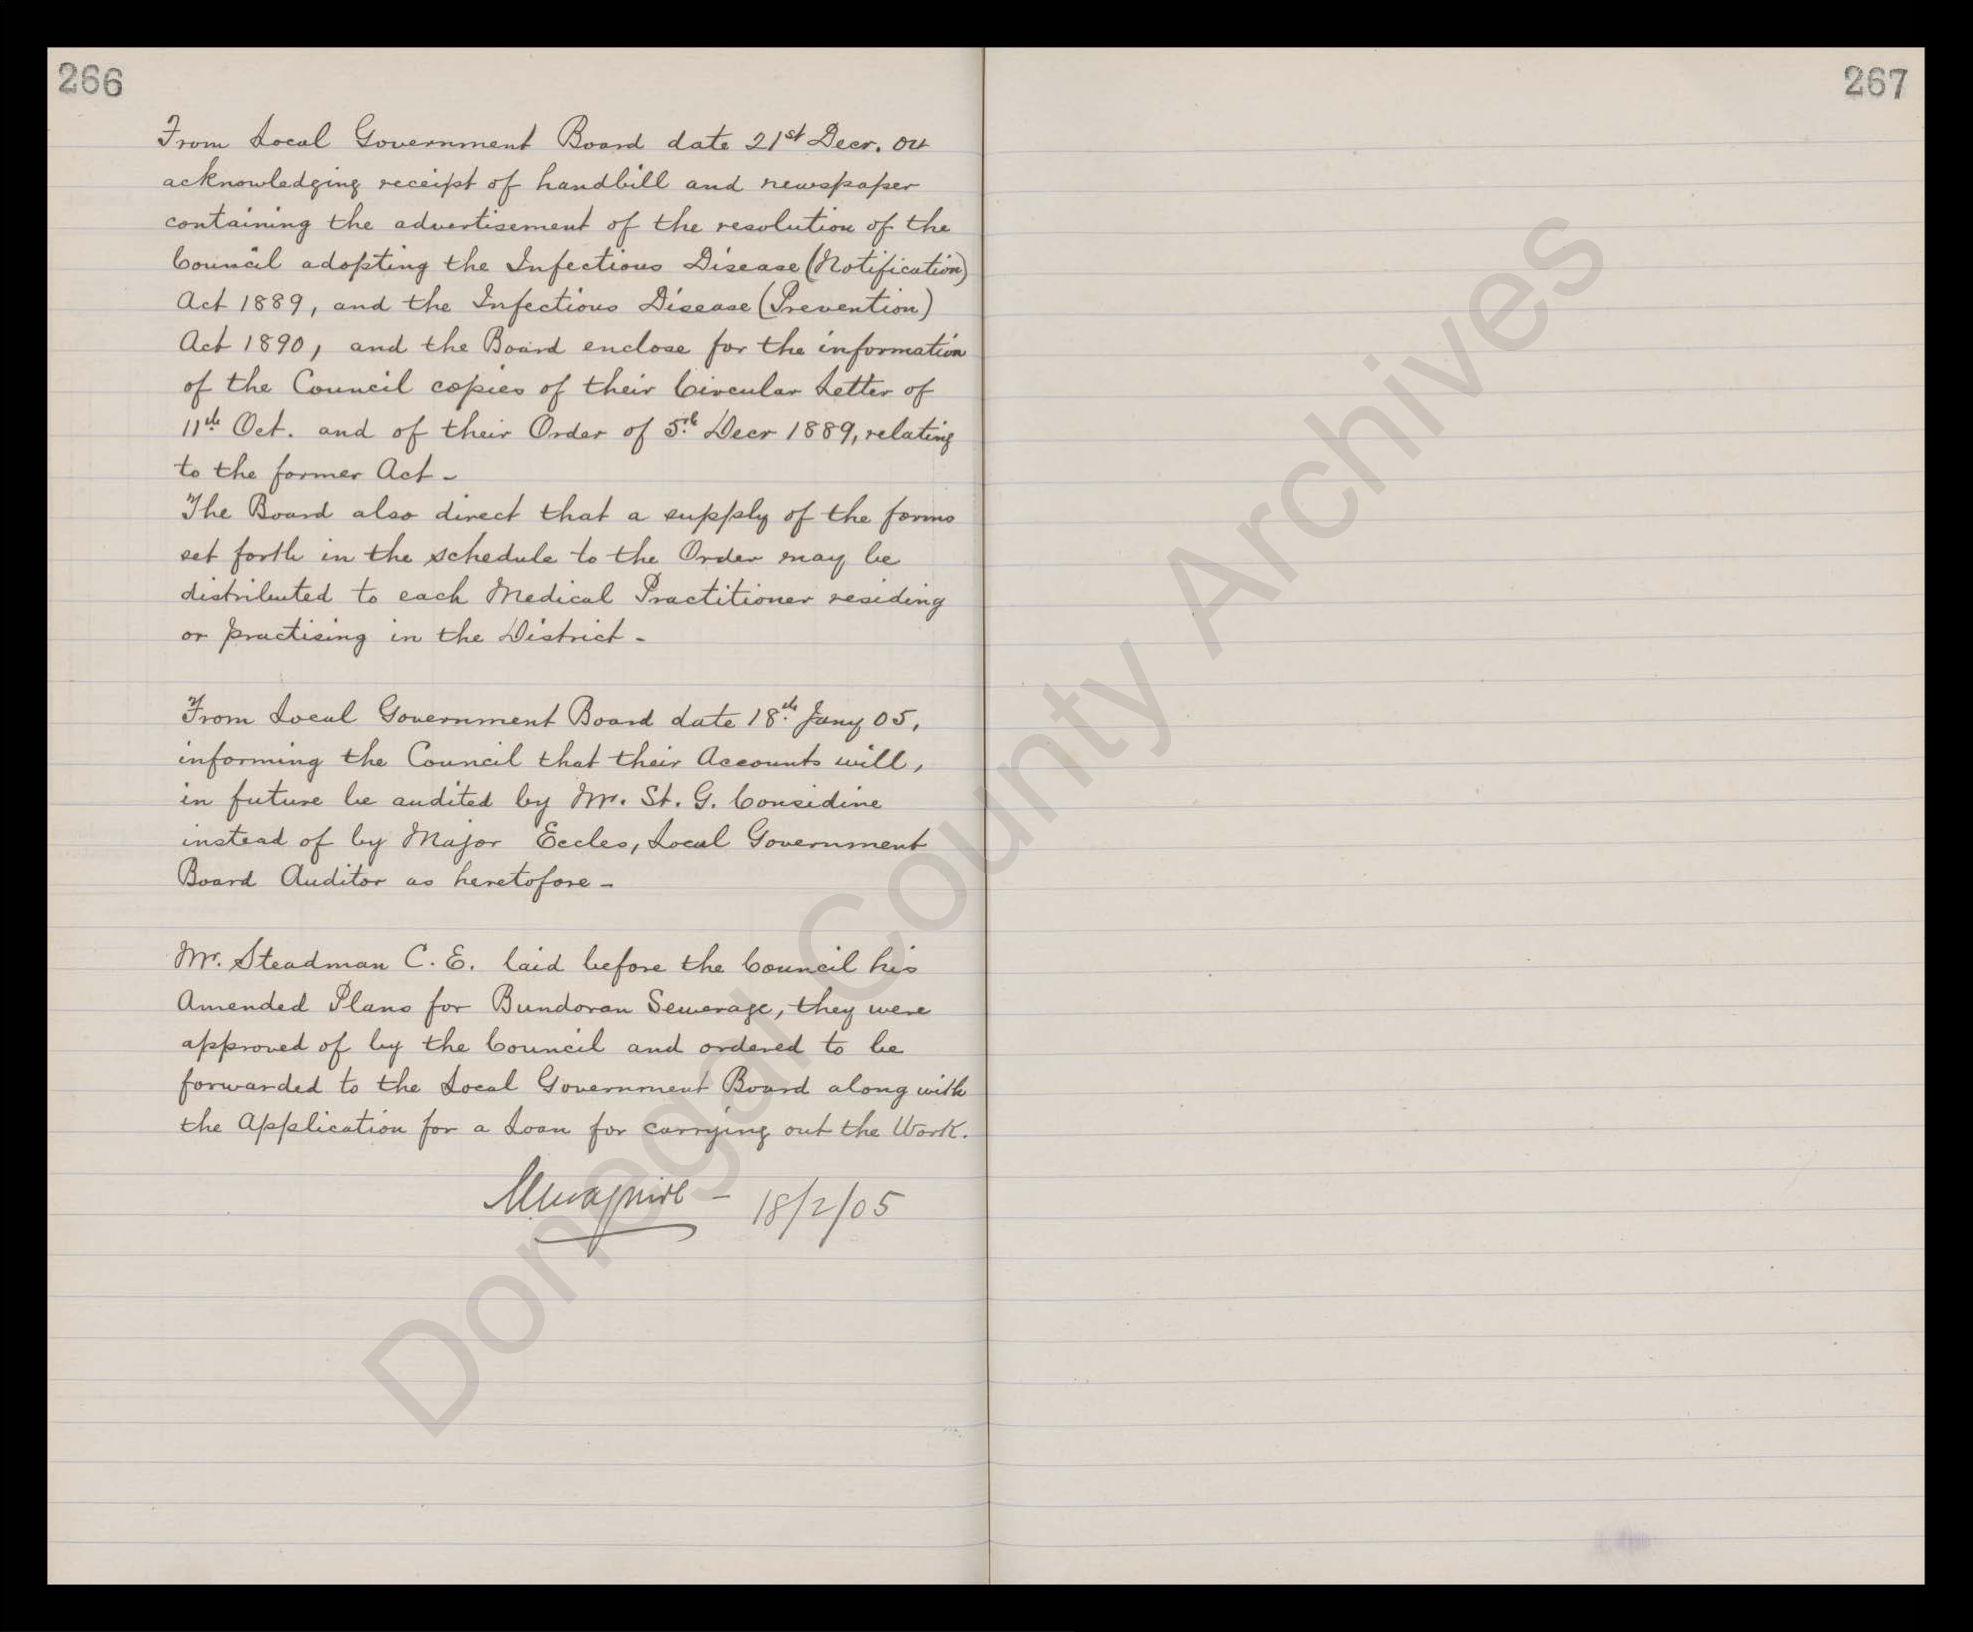 266
267
From Local Government Board date 21st Decr. 04
acknowledging receipt of handbill and newspaper
containing the advertisement of the resolution of the
Council adopting the Infectious Disease (Notification)
Act 1889, and the Infectious Disease (Prevention)
Act 1890, and the Board enclose for the information
of the Council copies of their Circular Letter of
11th Oct. and of their Order of 5th Decr 1889, relating
to the former Act -
The Board also direct that a supply of the forms
set forth in the schedule to the Order may be
distributed to each Medical Practitioner residing
or practising in the District -
From Local Government Board date 18th Jany 05,
informing the Council that their Accounts will,
in future be audited by Mr. St. G. Considine
instead of by Major Eccles, Local Government
Board Auditor as heretofore -
Mr. Steadman C. E. laid before the Council his
Amended Plans for Bundoran Sewerage, they were
approved of by the Council and ordered to be
forwarded to the Local Government Board along with
the Application for a Loan for carrying out the Work.
- 18/2/05
Donegal County Archives